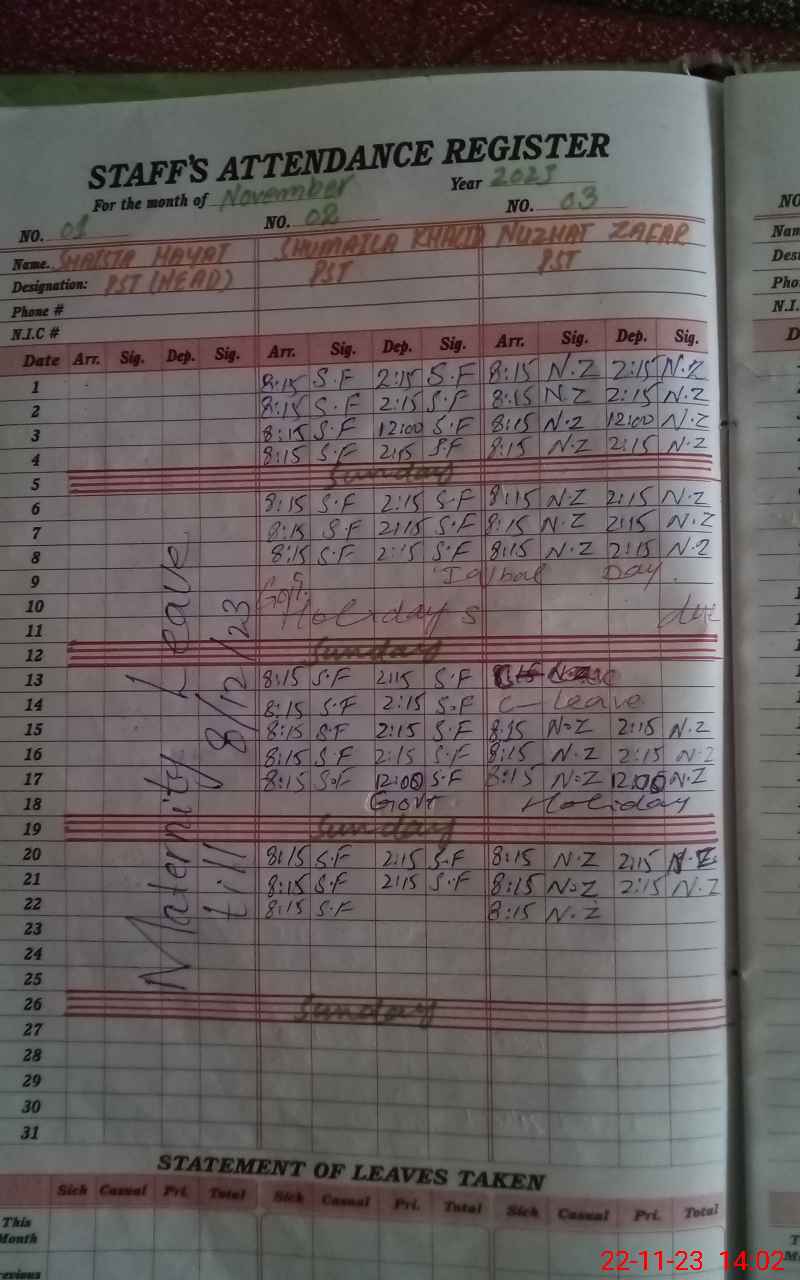 STAFF'S ATTENDANCE REGISTER
For the month of November Year 2023
NO. 01 NO. 02 NO. 03
Name. SHAISTA HAYAT SHUMAILA KHALID NUZHAT ZAFAR
Designation: PST (HEAD) PST PST
Phone #
N.I.C #
Date Arr. Sig. Dep. Sig. Arr. Sig. Dep. Sig. Arr. Sig. Dep. Sig.
1 8:15 S.F 2:15 S.F 8:15 N.Z 2:15 N.Z
2 8:15 S.F 2:15 S.F 8:15 N.Z 2:15 N.Z
3 8:15 S.F 12:00 S.F 8:15 N.Z 12:00 N.Z
4 8:15 S.F 2:15 S.F 8:15 N.Z 2:15 N.Z
5 Sunday
6 8:15 S.F 2:15 S.F 8:15 N.Z 2:15 N.Z
7 8:15 S.F 2:15 S.F 8:15 N.Z 2:15 N.Z
8 8:15 S.F 2:15 S.F 8:15 N.Z 2:15 N.Z
9 Iqbal Day
10 Holidays due
11
12 Sunday
13 8:15 S.F 2:15 S.F
14 8:15 S.F 2:15 S.F C- Leave
15 8:15 S.F 2:15 S.F 8:15 N.Z 2:15 N.Z
16 8:15 S.F 2:15 S.F 8:15 N.Z 2:15 N.Z
17 8:15 S.F 12:00 S.F 8:15 N.Z 12:00 N.Z
18 Govt Holiday
19 Sunday
20 8:15 S.F 2:15 S.F 8:15 N.Z 2:15 N.Z
21 8:15 S.F 2:15 S.F 8:15 N.Z 2:15 N.Z
22 8:15 S.F 8:15 N.Z
23
24
25
26 Sunday
27
28
29
30
31
Maternity Leave
till 8/12/23
STATEMENT OF LEAVES TAKEN
Sick Casual Pri. Total Sick Casual Pri. Total Sick Casual Pri. Total
This
Month
22-11-23 14:02